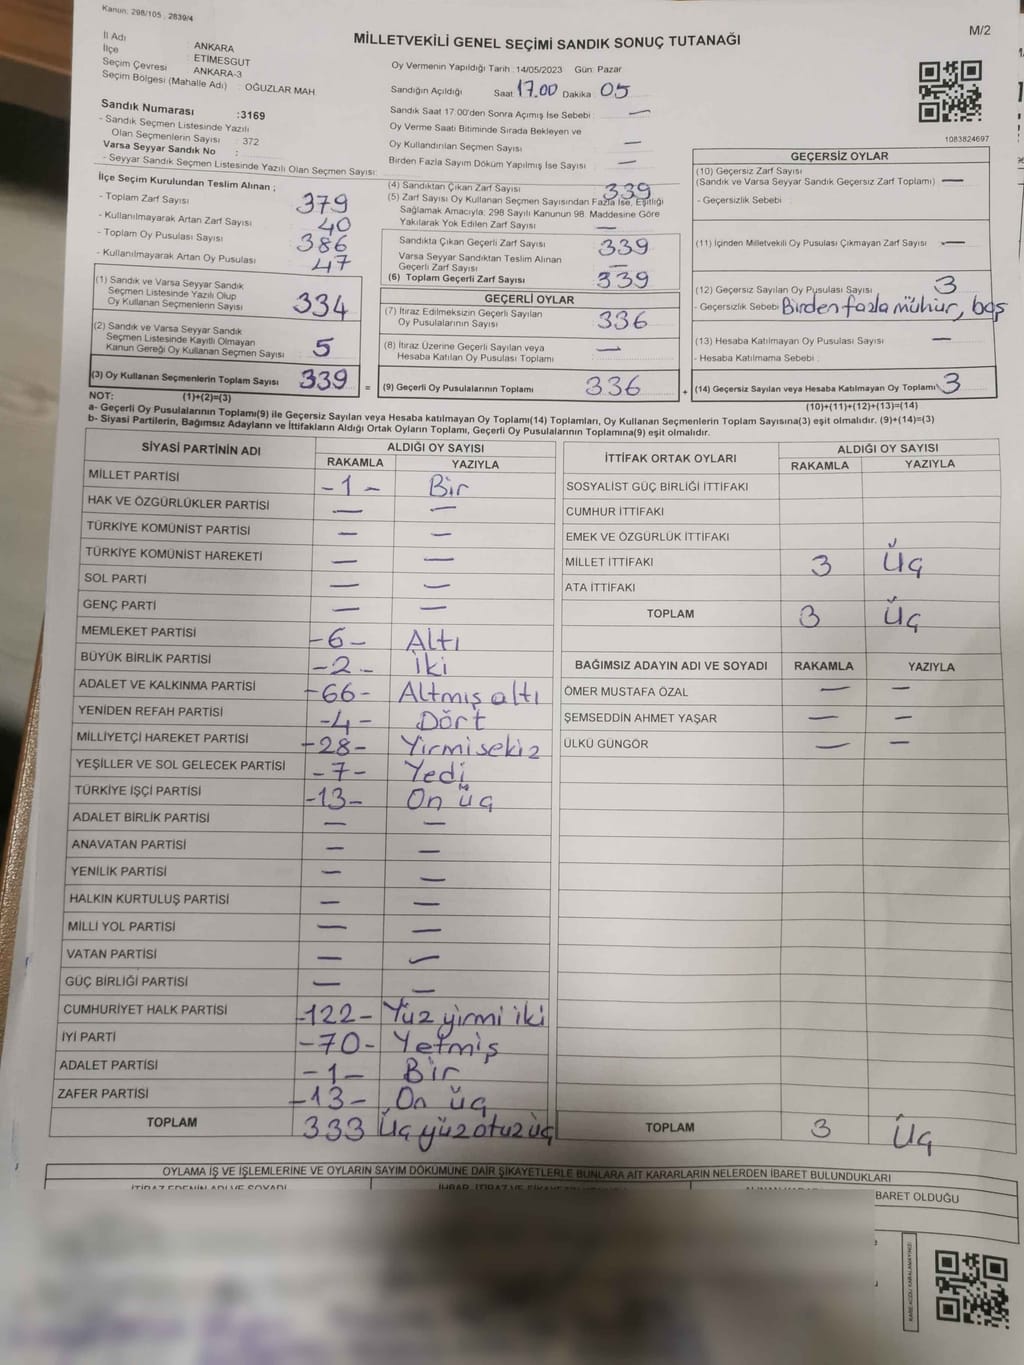 Kanun: 298/105 , 2839/4
M/2
MİLLETVEKİLİ GENEL SEÇİMİ SANDIK SONUÇ TUTANAĞI
İl Adı ANKARA
İlçe ETİMESGUT
Seçim Çevresi ANKARA-3
Seçim Bölgesi (Mahalle Adı) : OĞUZLAR MAH.
Sandık Numarası :3169
- Sandık Seçmen Listesinde Yazılı
Olan Seçmenlerin Sayısı : 372
Varsa Seyyar Sandık No :
- Seyyar Sandık Seçmen Listesinde Yazılı Olan Seçmen Sayısı:
Oy Vermenin Yapıldığı Tarih : 14/05/2023 Gün: Pazar
Sandığın Açıldığı Saat 17.00 Dakika 05
Sandık Saat 17:00'den Sonra Açımış İse Sebebi : —
Oy Verme Saati Bitiminde Sırada Bekleyen ve
Oy Kullandırılan Seçmen Sayısı —
Birden Fazla Sayım Döküm Yapılmış İse Sayısı : —
1083824697
İlçe Seçim Kurulundan Teslim Alınan ;
- Toplam Zarf Sayısı 379
- Kullanılmayarak Artan Zarf Sayısı 40
- Toplam Oy Pusulası Sayısı 386
- Kullanılmayarak Artan Oy Pusulası 47
(1) Sandık ve Varsa Seyyar Sandık
Seçmen Listesinde Yazılı Olup
Oy Kullanan Seçmenlerin Sayısı 334
(2) Sandık ve Varsa Seyyar Sandık
Seçmen Listesinde Kayıtlı Olmayan
Kanun Gereği Oy Kullanan Seçmen Sayısı 5
(3) Oy Kullanan Seçmenlerin Toplam Sayısı 339 =
(4) Sandıktan Çıkan Zarf Sayısı 339
(5) Zarf Sayısı Oy Kullanan Seçmen Sayısından Fazla İse, Eşitliği
Sağlamak Amacıyla, 298 Sayılı Kanunun 98. Maddesine Göre
Yakılarak Yok Edilen Zarf Sayısı —
Sandıkta Çıkan Geçerli Zarf Sayısı 339
Varsa Seyyar Sandıktan Teslim Alınan
Geçerli Zarf Sayısı —
(6) Toplam Geçerli Zarf Sayısı 339
GEÇERLİ OYLAR
(7) İtiraz Edilmeksizin Geçerli Sayılan
Oy Pusulalarının Sayısı 336
(8) İtiraz Üzerine Geçerli Sayılan veya
Hesaba Katılan Oy Pusulası Toplamı —
(9) Geçerli Oy Pusulalarının Toplamı 336 +
GEÇERSİZ OYLAR
(10) Geçersiz Zarf Sayısı
(Sandık ve Varsa Seyyar Sandık Geçersiz Zarf Toplamı) —
- Geçersizlik Sebebi
(11) İçinden Milletvekili Oy Pusulası Çıkmayan Zarf Sayısı —
(12) Geçersiz Sayılan Oy Pusulası Sayısı 3
- Geçersizlik Sebebi Birden fazla mühür, boş
(13) Hesaba Katılmayan Oy Pusulası Sayısı —
- Hesaba Katılmama Sebebi :
(14) Geçersiz Sayılan veya Hesaba Katılmayan Oy Toplamı 3
NOT: (1)+(2)=(3)
(10)+(11)+(12)+(13)=(14)
a- Geçerli Oy Pusulalarının Toplamı(9) ile Geçersiz Sayılan veya Hesaba katılmayan Oy Toplamı(14) Toplamları, Oy Kullanan Seçmenlerin Toplam Sayısına(3) eşit olmalıdır. (9)+(14)=(3)
b- Siyasi Partilerin, Bağımsız Adayların ve İttifakların Aldığı Ortak Oyların Toplamı, Geçerli Oy Pusulalarının Toplamına(9) eşit olmalıdır.
SİYASİ PARTİNİN ADI ALDIĞI OY SAYISI
RAKAMLA YAZIYLA
MİLLET PARTİSİ -1- Bir
HAK VE ÖZGÜRLÜKLER PARTİSİ — —
TÜRKİYE KOMÜNİST PARTİSİ — —
TÜRKİYE KOMÜNİST HAREKETİ — —
SOL PARTİ — —
GENÇ PARTİ — —
MEMLEKET PARTİSİ -6- Altı
BÜYÜK BİRLİK PARTİSİ -2- iki
ADALET VE KALKINMA PARTİSİ -66- Altmış altı
YENİDEN REFAH PARTİSİ -4- Dört
MİLLİYETÇİ HAREKET PARTİSİ -28- Yirmisekiz
YEŞİLLER VE SOL GELECEK PARTİSİ -7- Yedi
TÜRKİYE İŞÇİ PARTİSİ -13- On üç
ADALET BİRLİK PARTİSİ — —
ANAVATAN PARTİSİ — —
YENİLİK PARTİSİ — —
HALKIN KURTULUŞ PARTİSİ — —
MİLLİ YOL PARTİSİ — —
VATAN PARTİSİ — —
GÜÇ BİRLİĞİ PARTİSİ — —
CUMHURİYET HALK PARTİSİ -122- Yüz yirmi iki
İYİ PARTİ -70- Yetmiş
ADALET PARTİSİ -1- Bir
ZAFER PARTİSİ -13- On üç
TOPLAM 333 Üç yüz otuz üç
İTTİFAK ORTAK OYLARI ALDIĞI OY SAYISI
RAKAMLA YAZIYLA
SOSYALİST GÜÇ BİRLİĞİ İTTİFAKI
CUMHUR İTTİFAKI
EMEK VE ÖZGÜRLÜK İTTİFAKI
MİLLET İTTİFAKI 3 Üç
ATA İTTİFAKI
TOPLAM 3 Üç
BAĞIMSIZ ADAYIN ADI VE SOYADI RAKAMLA YAZIYLA
ÖMER MUSTAFA ÖZAL — —
ŞEMSEDDİN AHMET YAŞAR — —
ÜLKÜ GÜNGÖR — —
TOPLAM 3 Üç
OYLAMA İŞ VE İŞLEMLERİNE VE OYLARIN SAYIM DÖKÜMÜNE DAİR ŞİKAYETLERLE BUNLARA AİT KARARLARIN NELERDEN İBARET BULUNDUKLARI
İTİRAZ EDENİN ADI VE SOYADI
BARET OLDUĞU